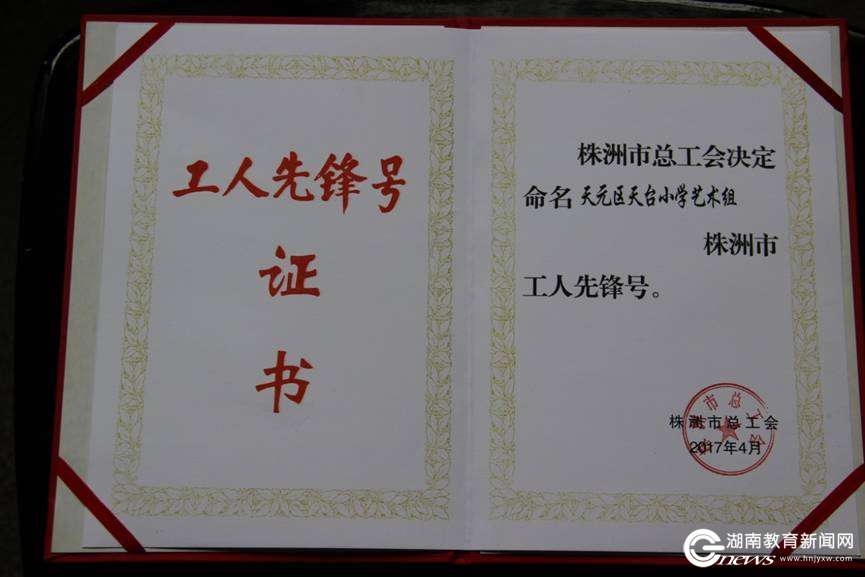 工人先锋号
证
书
株洲市总工会决定
命名天元区天台小学艺术组
株洲市
工人先锋号。
株洲市总工会
2017年4月
株洲市总工会
湖南教育新闻网
Gnews www.hnjyxw.com